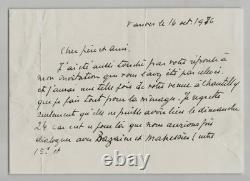 Vanves le 14 oct. 1976
Cher père et ami.
J'ai été aussi touché par votre réponse à
mon invitation que vous l'avez été par celle-ci
et j'aurai une telle joie de votre venue à Chantilly
que je fais tout pour la ménage. Je regrette
seulement qu'elle ne puisse avoir lieu le dimanche
24 car c'est ce jour là que nous aurions pris
dialogue avec Bazaine et Manessier (entre
15h et